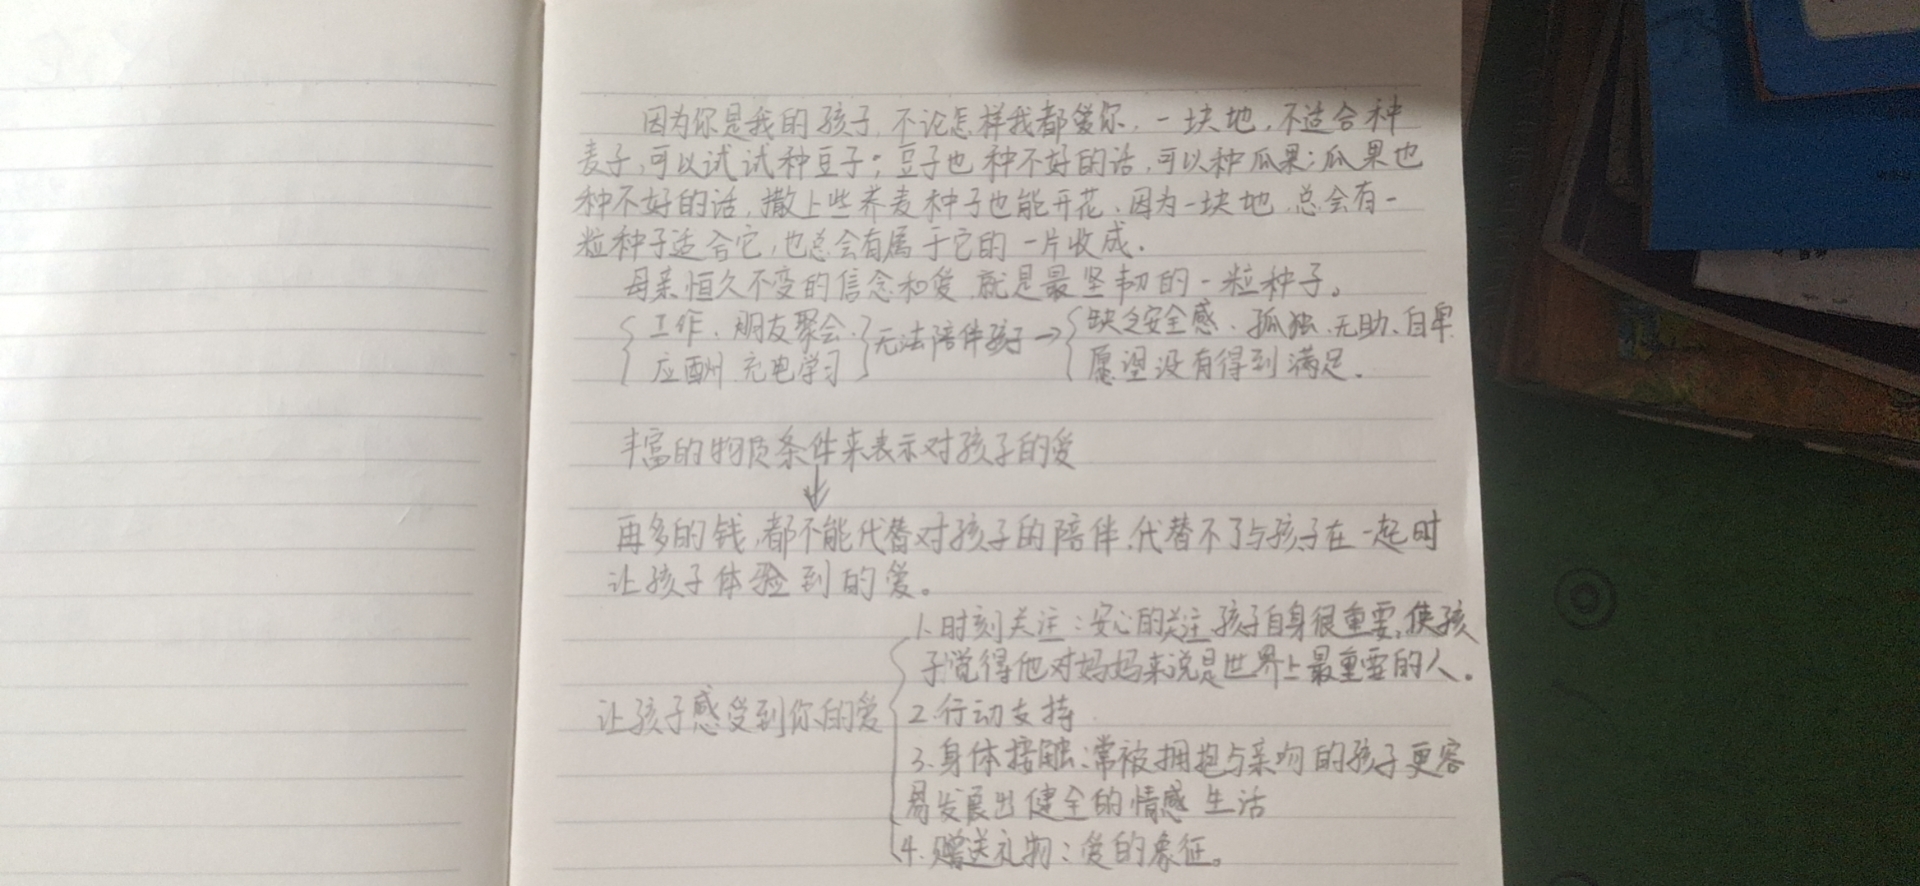 因为你是我的孩子,不论怎样我都爱你,一块地,不适合种
麦子,可以试试种豆子;豆子也种不好的话,可以种瓜果;瓜果也
种不好的话,撒上些荞麦种子也能开花、因为一块地,总会有一
粒种子适合它,也总会有属于它的一片收成.
母亲恒久不变的信念和爱,就是最坚韧的一粒种子。
工作、朋友聚会、
应酬 充电学习
无法陪伴孩子→
缺乏安全感、孤独、无助、自卑
愿望没有得到满足.
丰富的物质条件来表示对孩子的爱
↓
再多的钱,都不能代替对孩子的陪伴,代替不了与孩子在一起时
让孩子体验到的爱。
让孩子感受到你的爱
1.时刻关注:安心的关注孩子自身很重要,使孩
子觉得他对妈妈来说是世界上最重要的人。
2.行动支持
3.身体接触:常被拥抱与亲吻的孩子更容
易发展出健全的情感生活
4.赠送礼物:爱的象征。